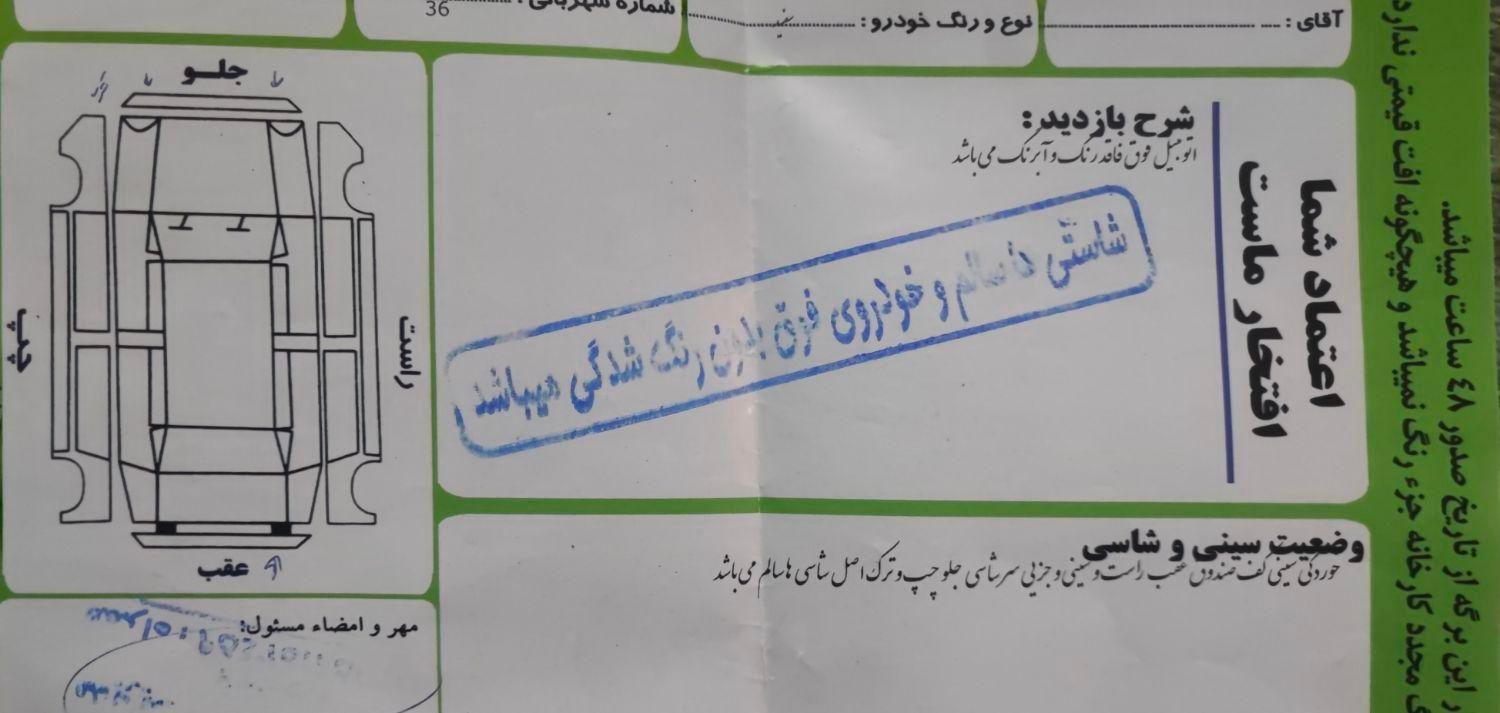 آقای :
نوع و رنگ خودرو : سفید
شماره شهربانی :
36
شرح بازدید:
اتومبیل فوق فاقد رنگ و آبرنگ می باشد
اعتماد شما
افتخار ماست
شاستی ها سالم و خودروی فوق بدون رنگ شدگی میباشد
وضعیت سینی و شاسی
خوردگی سینی کف صندوق عقب راست و سینی و جزیی سرشاسی جلو چپ و ترک اصل شاسی ها سالم می باشد
جلو
چپ
راست
عقب
مهر و امضاء مسئول:
همراه:
این برگه از تاریخ صدور ٤٨ ساعت میباشد.
مجدد کارخانه جزء رنگ نمیباشد و هیچگونه افت قیمتی ندارد